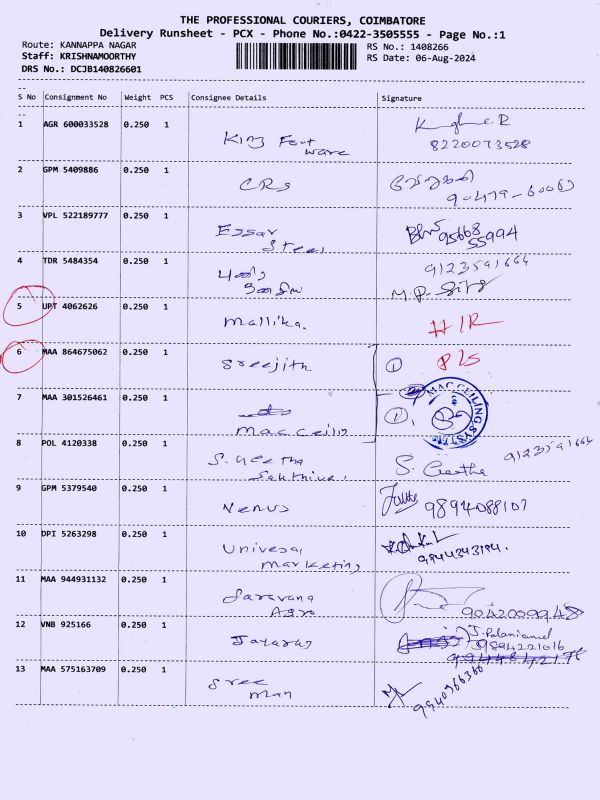 THE PROFESSIONAL COURIERS, COIMBATORE
Delivery Runsheet - PCX - Phone No.:0422-3505555 - Page No.:1
Route: KANNAPPA NAGAR RS No.: 1408266
Staff: KRISHNAMOORTHY RS Date: 06-Aug-2024
DRS No.: DCJB140826601
S No Consignment No Weight PCS Consignee Details Signature
1 AGR 600033528 0.250 1 King Foot
ware
8220073528
2 GPM 5409886 0.250 1 CRS
3 VPL 522189777 0.250 1 Essar
Steel
95668
55994
4 TDR 5484354 0.250 1
9123591664
5 UPT 4062626 0.250 1 Mallika. H/R
6 MAA 864675062 0.250 1 Sreejith 1
7 MAA 301526461 0.250 1 Mac ceilig 1
MAC CEILING SYSTEM
8 POL 4120338 0.250 1 S. Geetha S. Geetha 9123591664
9 GPM 5379540 0.250 1 Venus 9894088107
10 DPI 5263298 0.250 1 Univesal
marketing 9944343194.
11 MAA 944931132 0.250 1 Saravana
Agro 9042009948
12 VNB 925166 0.250 1 J. Palaniamel
9894221016
13 MAA 575163709 0.250 1 Sree
man 9940966360